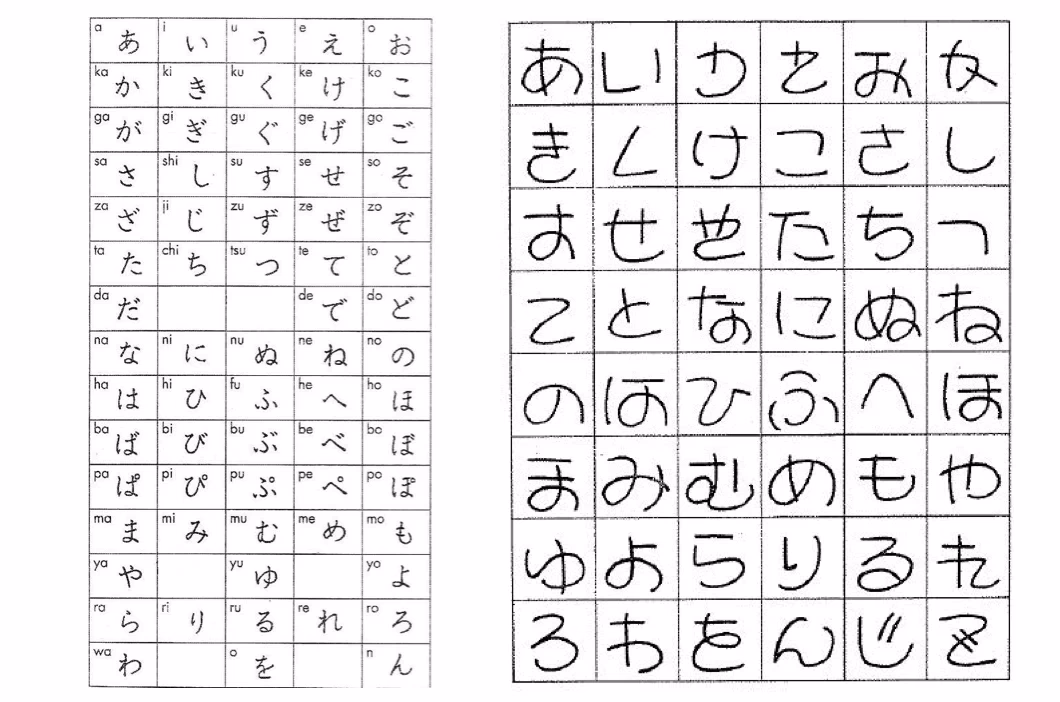 a あ i い u う e え o お
ka か ki き ku く ke け ko こ
ga が gi ぎ gu ぐ ge げ go ご
sa さ shi し su す se せ so そ
za ざ ji じ zu ず ze ぜ zo ぞ
ta た chi ち tsu つ te て to と
da だ de で do ど
na な ni に nu ぬ ne ね no の
ha は hi ひ fu ふ he へ ho ほ
ba ば bi び bu ぶ be べ bo ぼ
pa ぱ pi ぴ pu ぷ pe ぺ po ぽ
ma ま mi み mu む me め mo も
ya や yu ゆ yo よ
ra ら ri り ru る re れ ro ろ
wa わ o を n ん
あ い う え お か
き く け こ さ し
す せ た ち つ
て と な に ぬ ね
の は ひ ふ へ ほ
ま み む め も や
ゆ よ ら り る れ
ろ わ を ん じ